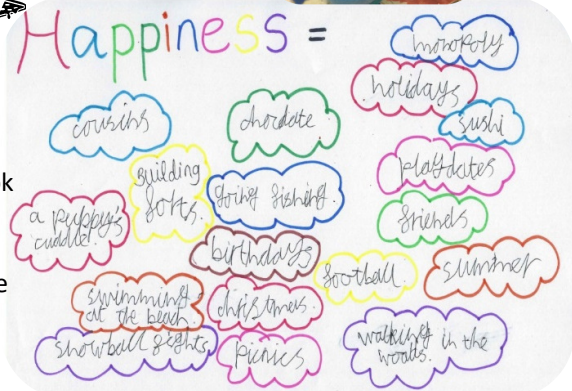 Happiness =
monopoly
holidays
cousins
chocolate.
sushi
Building
forts.
going fishing.
playdates
a puppy's
cuddle!
friends
birthdays
football.
summer
swimming
at the beach.
christmas.
snowball fights
picnics
walking in the
woods.